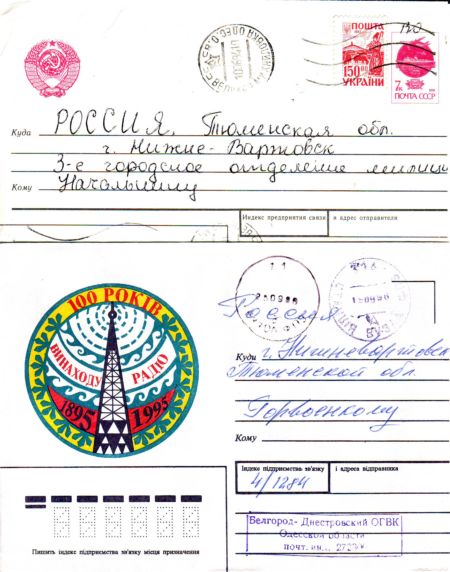 ПОШТА
150.00
УКРАЇНИ
7к
ПОЧТА СССР
Куда РОССИЯ, Тюменская обл.
г. Нижне-Вартовск
3-е городское отделение милиции
Кому Начальнику
Индекс предприятия связи и адрес отправителя
100 РОКІВ
ВИНАХОДУ РАДІО
1895 1995
Россия
Куди г. Нижневартовск
Тюменской обл
Горвоенкому
Кому
Індекс підприємства зв'язку і адреса відправника
4/1284
Белгород-Днестровский ОГВК
Одесской области
почт. инд.
Пишіть індекс підприємства зв'язку місця призначення